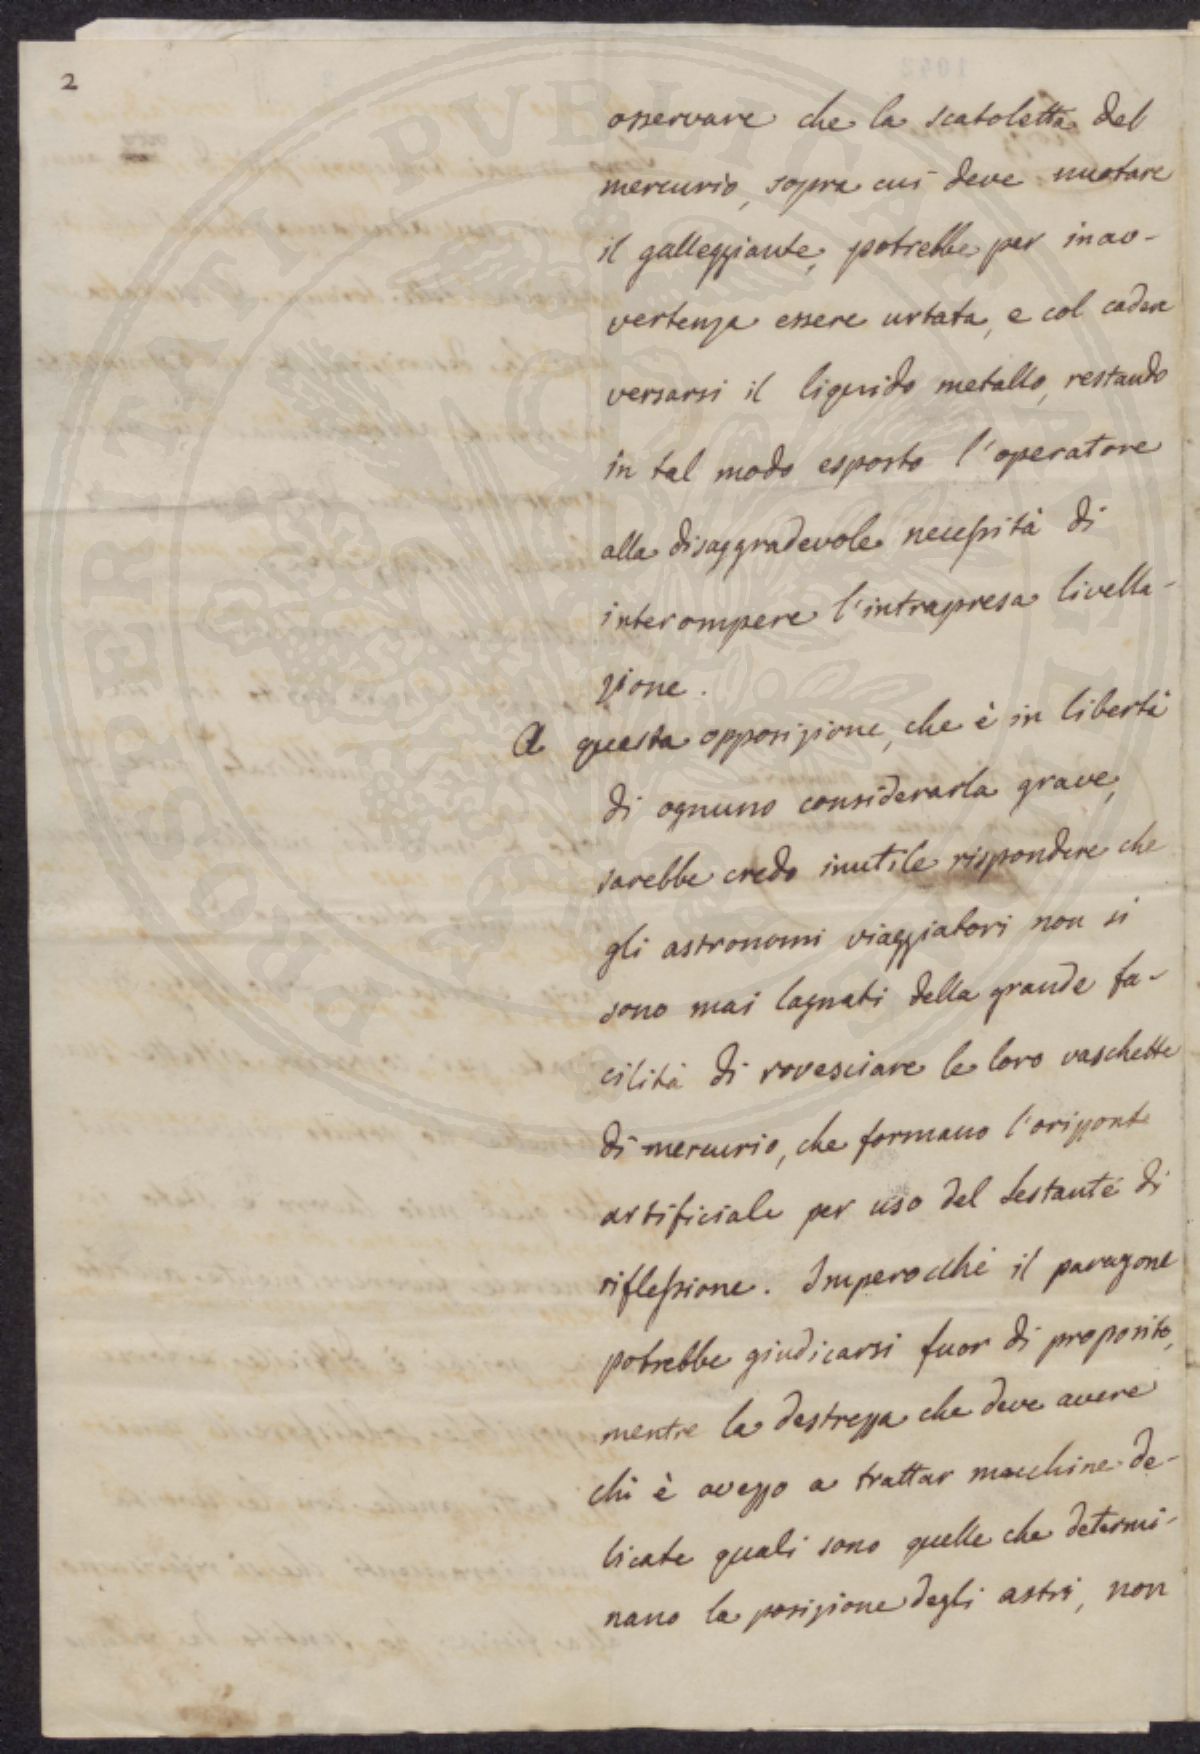 2
osservare che la scatoletta del
mercurio, sopra cui deve nuotare
il galleggiante, potrebbe per inav-
vertenza essere urtata, e col cadere
versarsi il liquido metallo, restando
in tal modo esposto l'operatore
alla disaggradevole necessità di
interompere l'intrapresa livella-
zione.
A questa opposizione, che è in libertà
di ognuno considerarla grave,
sarebbe credo inutile rispondere che
gli astronomi viaggiatori non si
sono mai lagnati della grande fa-
cilità di rovesciare le loro vaschette
di mercurio, che formano l'orizzonte
artificiale per uso del Sestante di
riflessione. Imperocchè il paragone
potrebbe giudicarsi fuor di proposito,
mentre la destrezza che deve avere
chi è avezzo a trattar macchine de-
licate quali sono quelle che determi-
nano la posizione degli astri, non
PROSPERITATI PVBLICAE AVGENDAE